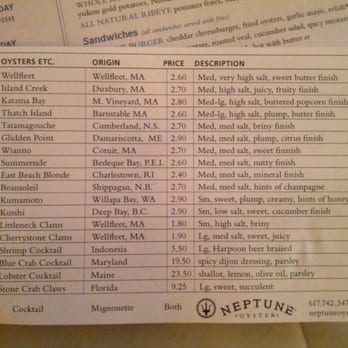 yukon gold potatoes,
ALL NATURAL RIBEYE pommes frites,
Sandwiches (all sandwiches served with fries)
BURGER, cheddar cheese, fried oysters, garlic mayo,
roasted veal, cucumber salad, spicy mustard
hot with butter or
OYSTERS ETC. ORIGIN PRICE DESCRIPTION
Wellfleet Wellfleet, MA 2.60 Med, very high salt, sweet butter finish
Island Creek Duxbury, MA 2.70 Med, high salt, juicy, fruity finish
Katama Bay M. Vineyard, MA 2.80 Med-lg, high salt, buttered popcorn finish
Thatch Island Barnstable MA 2.60 Med-lg, high salt, plump, butter finish
Tatamagouche Cumberland, N.S. 2.70 Med, med salt, briny finish
Glidden Point Damariscotta, ME 2.90 Med, med salt, plump, citrus finish
Wianno Cotuit, MA 2.70 Med, med salt, sweet finnish
Summerside Bedeque Bay, P.E.I. 2.60 Med, med salt, nutty finish
East Beach Blonde Charlestown, RI 2.40 Med, med salt, mineral finish
Beausoleil Shippagan, N.B. 2.70 Med, med salt, hints of champagne
Kumamoto Willapa Bay, WA 2.90 Sm, sweet, plump, creamy, hints of honey
Kusshi Deep Bay, B.C. 2.90 Sm, low salt, sweet, cucumber finish
Littleneck Clams Wellfleet, MA 1.80 Sm, high salt, briny
Cherrystone Clams Wellfleet, MA 1.90 Lg, med salt, sweet, juicy
Shrimp Cocktail Indonesia 3.50 Lg, Harpoon beer braised
Blue Crab Cocktail Maryland 19.50 spicy dijon dressing, parsley
Lobster Cocktail Maine 23.50 shallot, lemon, olive oil, parsley
Stone Craw Claws Florida 9.25 Lg, sweet, succulent
Cocktail Mignonette Both NEPTUNE 617.742.34
OYSTER neptuneoys